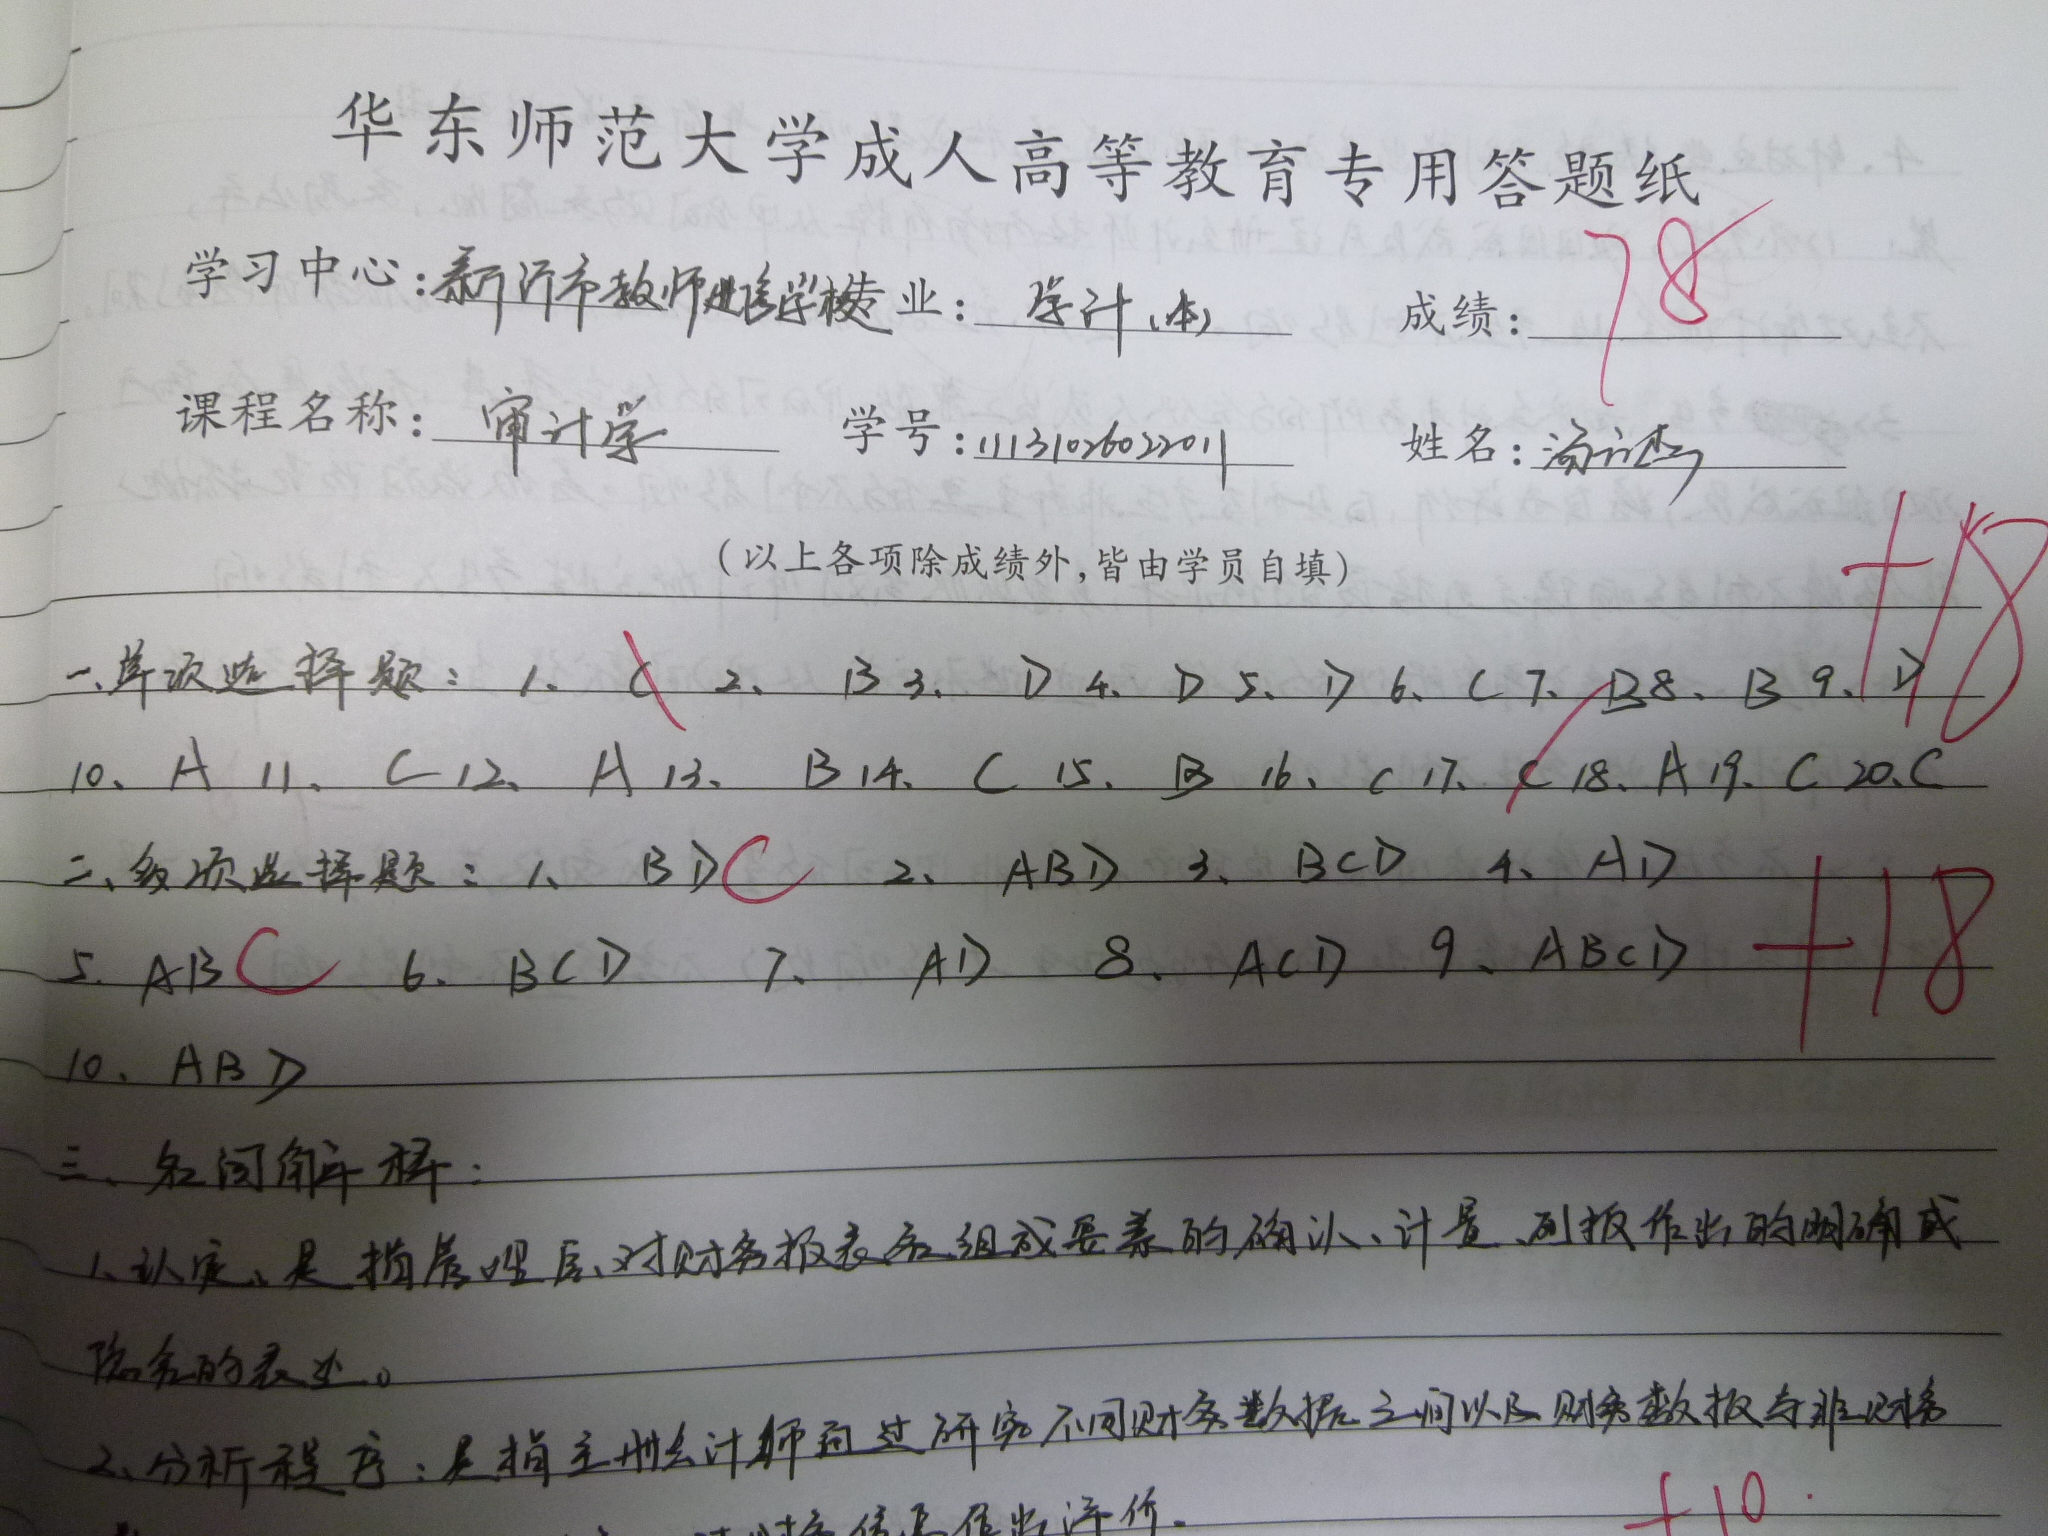 华东师范大学成人高等教育专用答题纸
学习中心:新沂市教师进修学校 专业: 会计(本) 成绩: 78
课程名称: 审计学 学号: 11131026022011 姓名: 汤
(以上各项除成绩外,皆由学员自填)
+18
一、单项选择题: 1、C 2、B 3、D 4、D 5、D 6、C 7、B 8、B 9、D
10、A 11、C 12、A 13、B 14、C 15、B 16、C 17、C 18、A 19、C 20、C
二、多项选择题: 1、BDC 2、ABD 3、BCD 4、AD
5、ABC 6、BCD 7、AD 8、ACD 9、ABCD +18
10、ABD
三、名词解释:
1、认定、是指管理层对财务报表各组成要素的确认、计量、列报作出的明确或
隐含的表达。
2、分析程序:是指注册会计师通过研究不同财务数据之间以及财务数据与非财务
+10
作出评价。